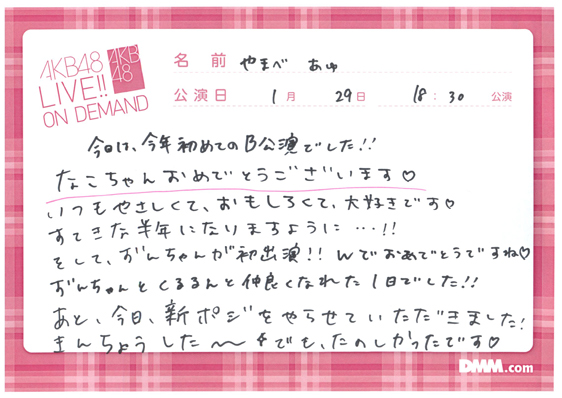 AKB48
LIVE!!
ON DEMAND
AKB
48
名 前 やまべ あゆ
公演日 1月 29日 18:30 公演
今日は、今年初めてのB公演でした!!
なこちゃんおめでとうございます♡
いつもやさしくて、おもしろくて、大好きです♡
すてきな半年になりますように…!!
そして、ずんちゃんが初出演!! Wでおめでとうですね♡
ずんちゃんとくるるんと仲良くなれた1日でした!!
あと、今日、新ポジをやらせていただきました!
きんちょうした〜 でも、たのしかったです♡
DMM.com